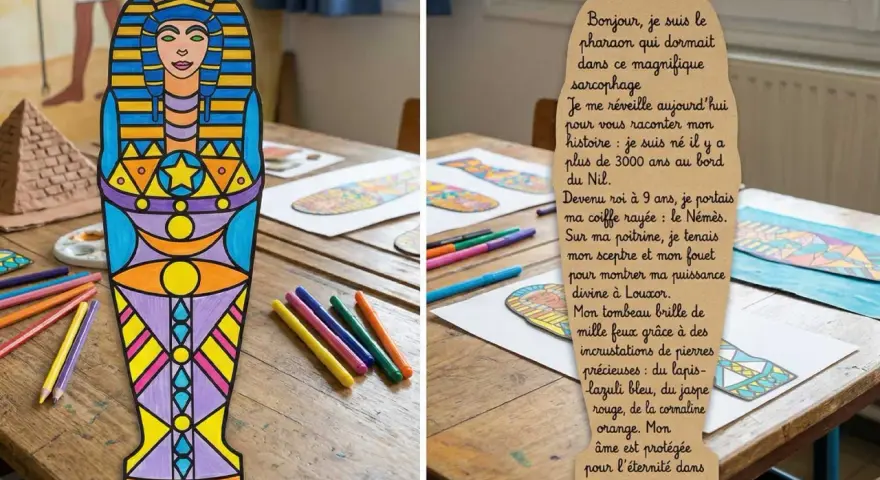 Bonjour, je suis le
pharaon qui dormait
dans ce magnifique
sarcophage
Je me réveille aujourd'hui
pour vous raconter mon
histoire : je suis né il y a
plus de 3000 ans au bord
du Nil.
Devenu roi à 9 ans, je portais
ma coiffe rayée : le Némès.
Sur ma poitrine, je tenais
mon sceptre et mon fouet
pour montrer ma puissance
divine à Louxor.
Mon tombeau brille de
mille feux grâce à des
incrustations de pierres
précieuses : du lapis-
-lazuli bleu, du jaspe
rouge, de la cornaline
orange. Mon
âme est protégée
pour l'éternité dans